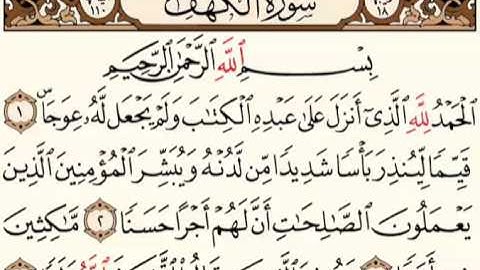 سُورَةُ الْكَهْفِ
بِسْمِ اللَّهِ الرَّحْمَٰنِ الرَّحِيمِ
الْحَمْدُ لِلَّهِ الَّذِي أَنزَلَ عَلَىٰ عَبْدِهِ الْكِتَابَ وَلَمْ يَجْعَل لَّهُ عِوَجًا ۜ ١
قَيِّمًا لِّيُنذِرَ بَأْسًا شَدِيدًا مِّن لَّدُنْهُ وَيُبَشِّرَ الْمُؤْمِنِينَ الَّذِينَ
يَعْمَلُونَ الصَّالِحَاتِ أَنَّ لَهُمْ أَجْرًا حَسَنًا ٢ مَّاكِثِينَ